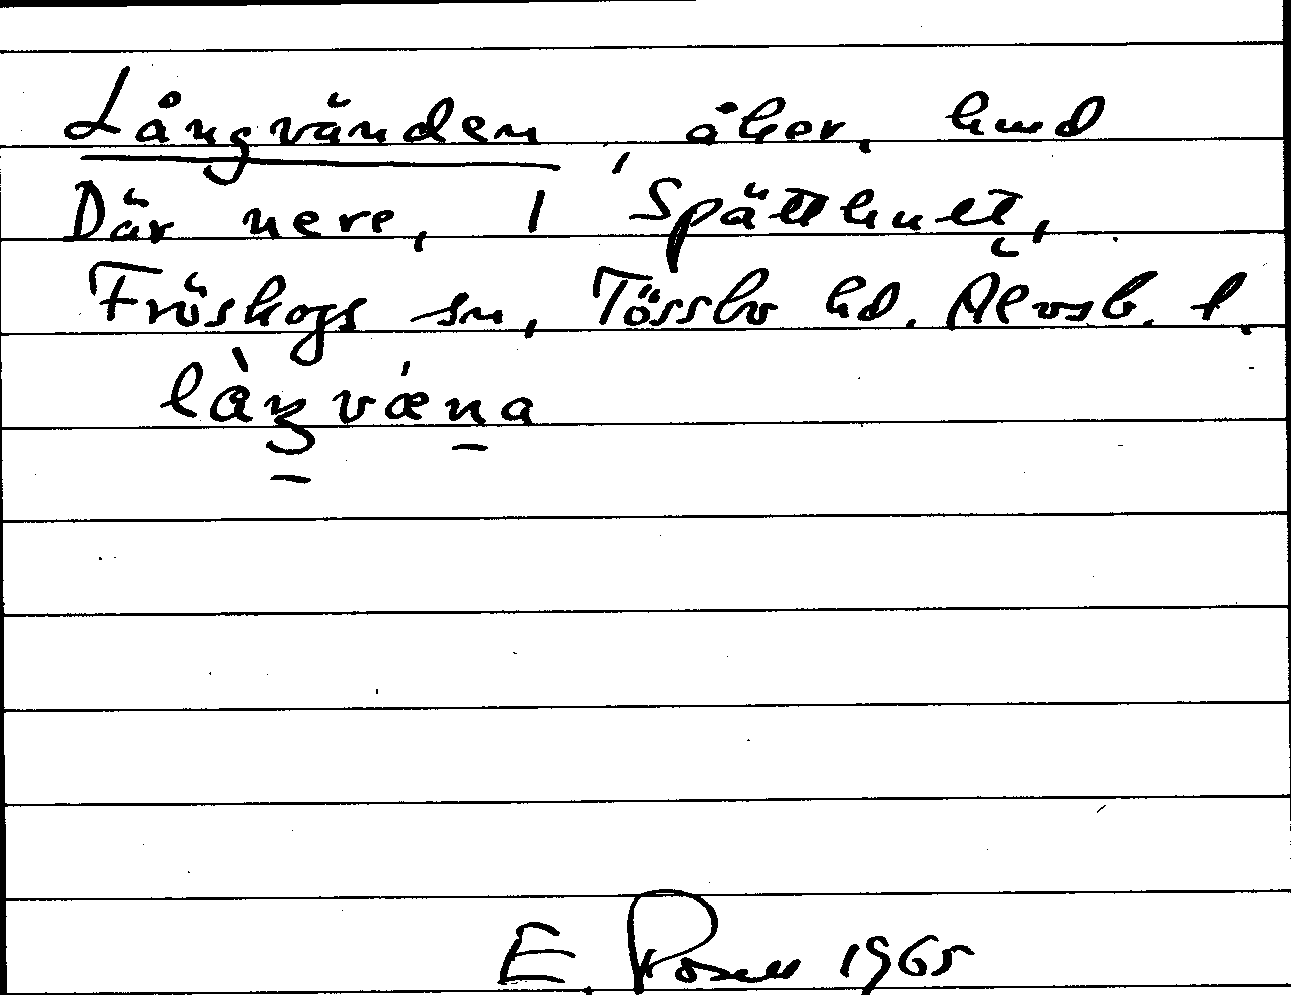 Långvänden, åker, hmd
Där nere, i Spätthult,
Fröskogs sn, Tössbo hd. Älvsb. l.
làŋvǽna
E. Rosell 1965